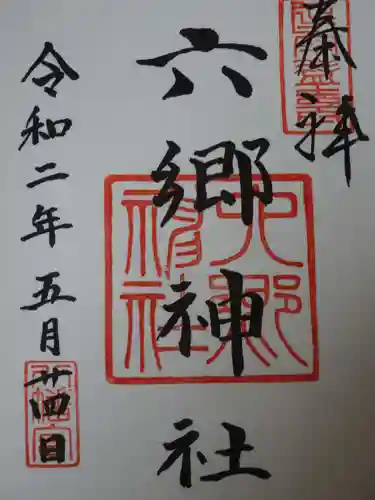 奉拝
六郷神社
令和二年五月廿四日
六郷神社